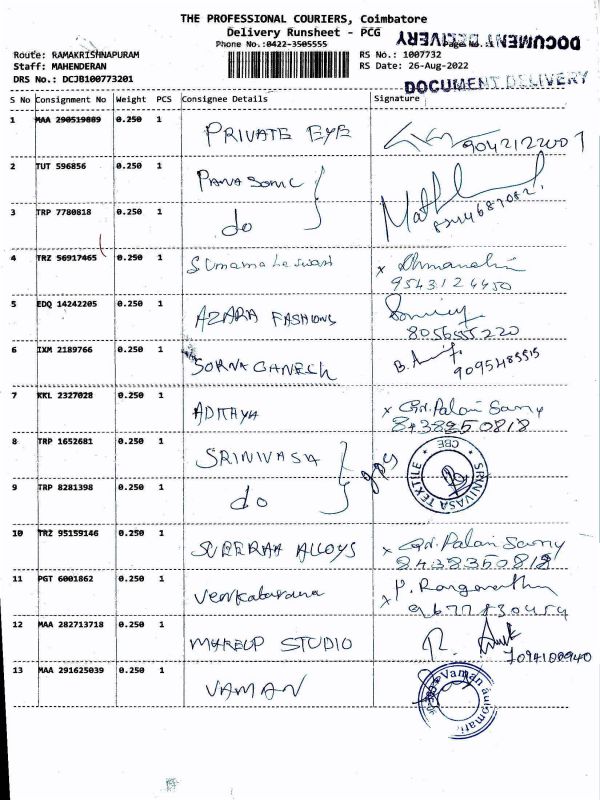 THE PROFESSIONAL COURIERS, Coimbatore
Delivery Runsheet - PCG
Phone No.:0422-3505555
DOCUMENT DELIVERY
Route: RAMAKRISHNAPURAM
RS No.: 1007732
Staff: MAHENDERAN
RS Date: 26-Aug-2022
DRS No.: DCJB100773201
DOCUMENT DELIVERY
S No Consignment No Weight PCS Consignee Details Signature
1 MAA 290519889 0.250 1 PRIVATE EYE 9042122007
2 TUT 596856 0.250 1 PANASONIC
3 TRP 7780818 0.250 1 do
4 TRZ 56917465 0.250 1 x
9543124450
5 EDQ 14242205 0.250 1 AZARA FASHIONS
8056555220
6 IXM 2189766 0.250 1 SORNA GANESH B.
9095485515
7 KKL 2327028 0.250 1 ADITHYA x Gn. Palani Samy
8438250818
8 TRP 1652681 0.250 1 SRINIVASA 2pcs
SRINIVASA TEXTILE CBE
9 TRP 8281398 0.250 1 do
10 TRZ 95159146 0.250 1 SUBERAA ALLOYS x Gn. Palani Samy
8438350818
11 PGT 6001862 0.250 1 Venkataramana x P.
12 MAA 282713718 0.250 1 MAKEUP STUDIO R.
7094100940
13 MAA 291625039 0.250 1 VAMAN
Vaman